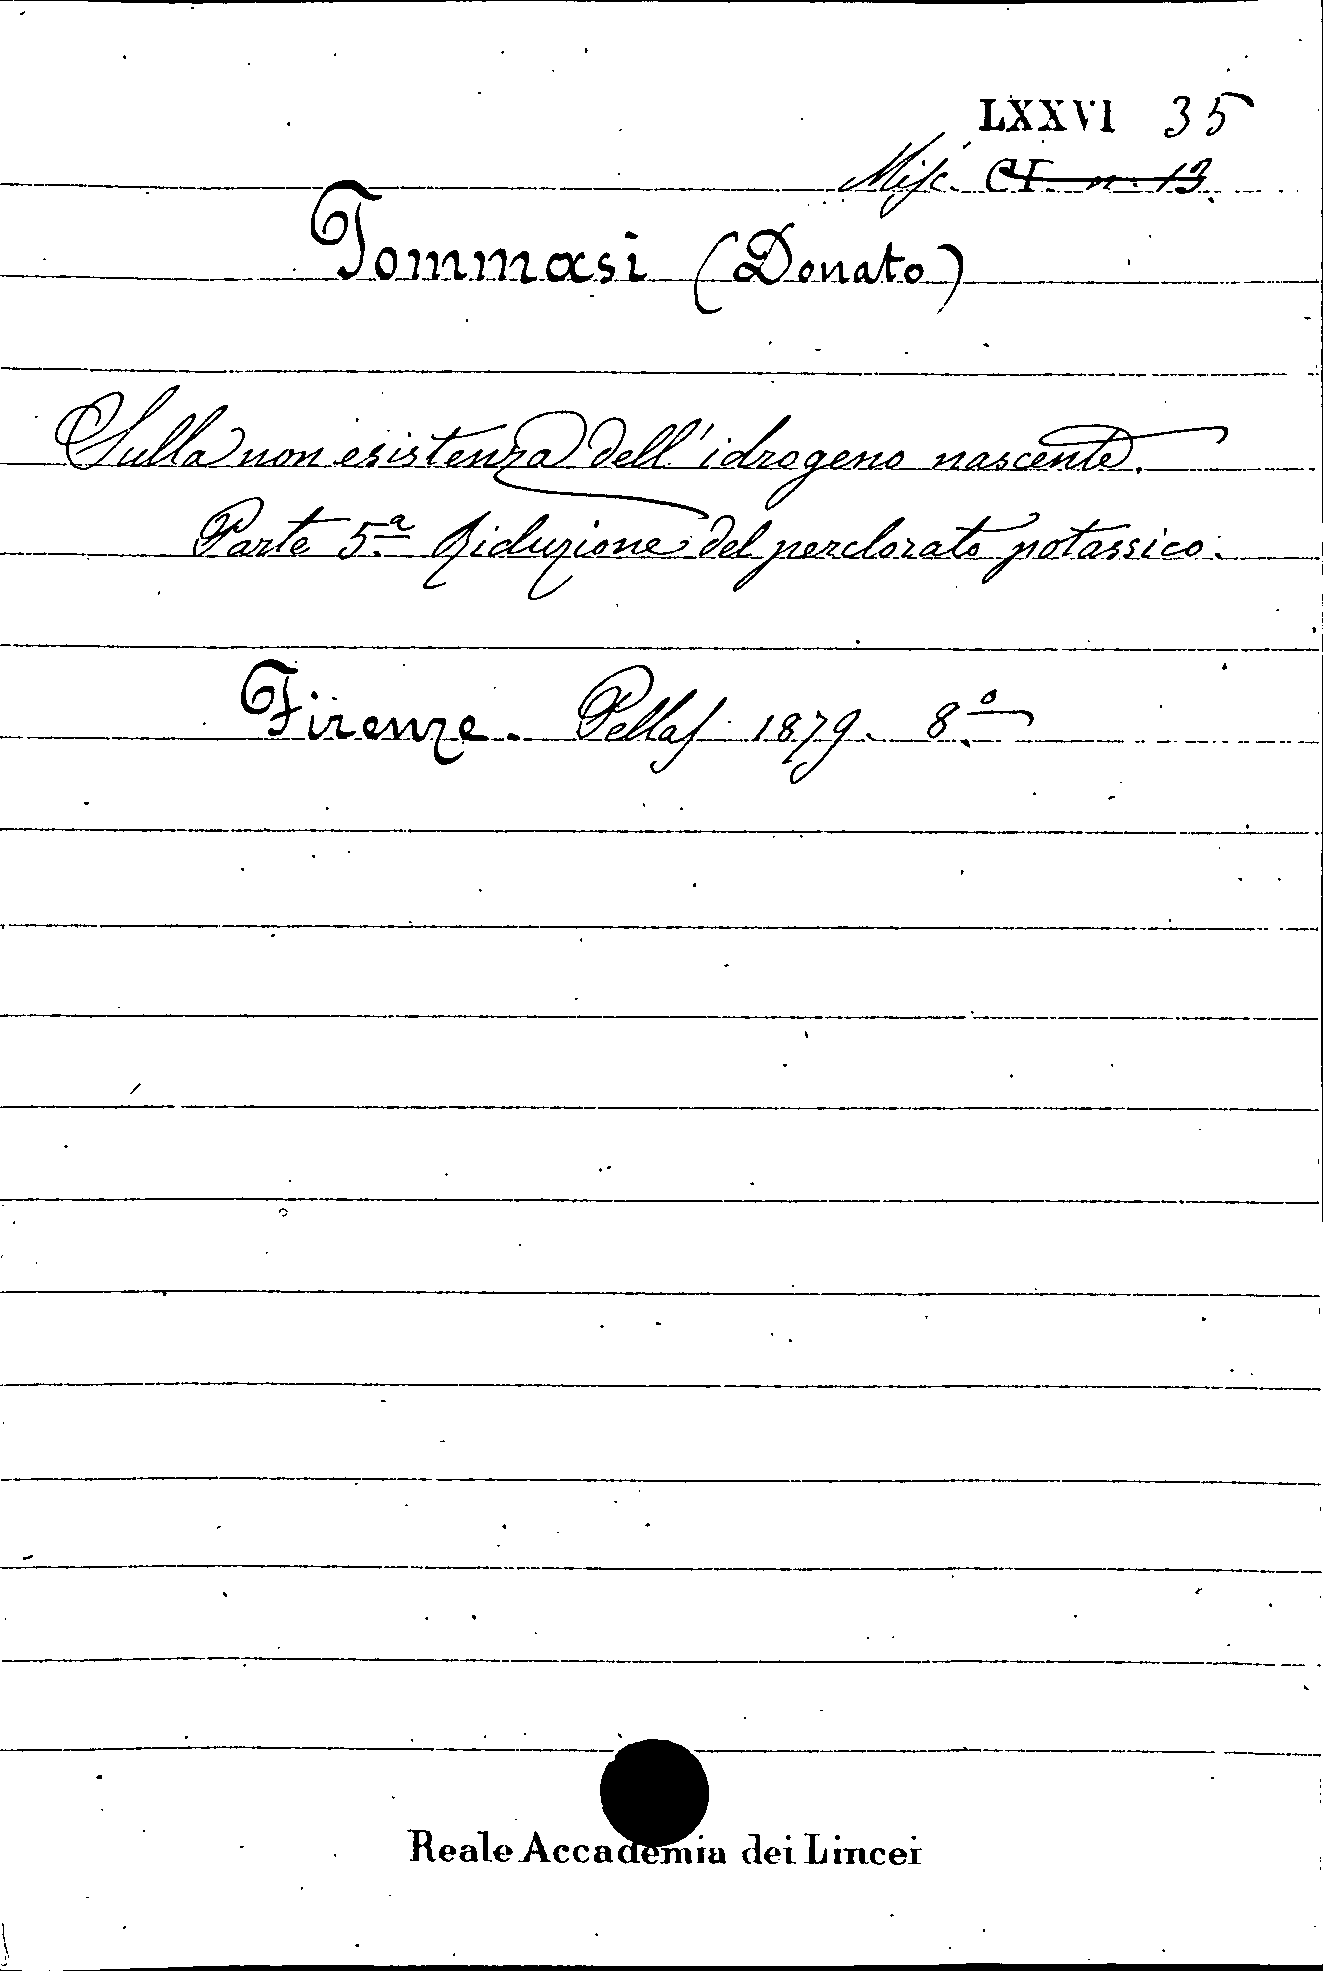 LXXVI 35
Misc. CI. n. 13.
Tommasi (Donato)
Sulla non esistenza dell'idrogeno nascente.
Parte 5.a Riduzione del perclorato potassico.
Firenze. Pellas 1879. 8.o
Reale Accademia dei Lincei